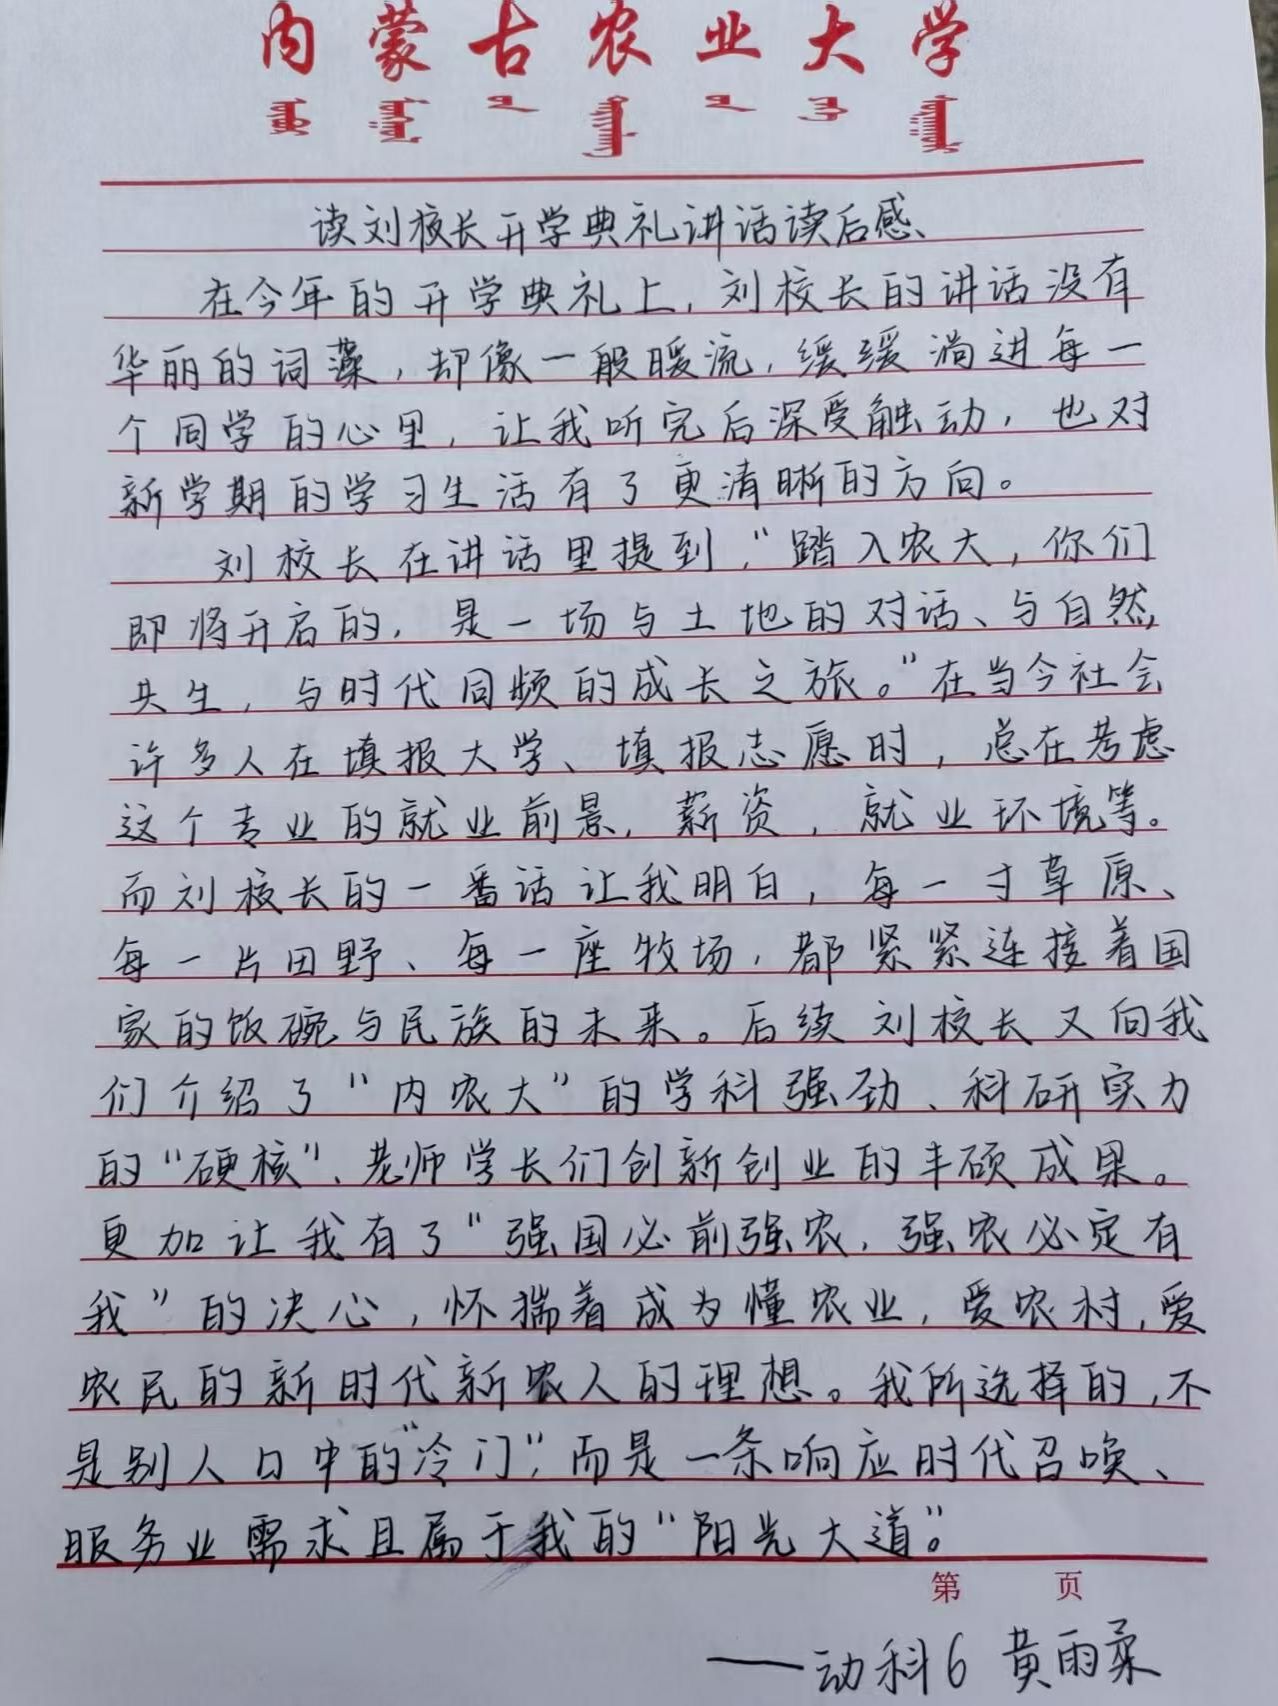 内蒙古农业大学
读刘校长开学典礼讲话读后感、
在今年的开学典礼上，刘校长的讲话没有
华丽的词藻，却像一般暖流，缓缓淌进每一
个同学的心里，让我听完后深受触动，也对
新学期的学习生活有了更清晰的方向。
刘校长在讲话里提到，“踏入农大，你们
即将开启的，是一场与土地的对话、与自然
共生，与时代同频的成长之旅。”在当今社会
许多人在填报大学、填报志愿时，总在考虑
这个专业的就业前景，薪资，就业环境等。
而刘校长的一番话让我明白，每一寸草原、
每一片田野、每一座牧场，都紧紧连接着国
家的饭碗与民族的未来。后续刘校长又向我
们介绍了“内农大”的学科强劲、科研实力
的“硬核”、老师学长们创新创业的丰硕成果。
更加让我有了“强国必前强农，强农必定有
我”的决心，怀揣着成为懂农业，爱农村，爱
农民的新时代新农人的理想。我所选择的，不
是别人口中的“冷门”，而是一条响应时代召唤、
服务业需求且属于我的“阳光大道”。
第 页
——动科6 黄雨柔